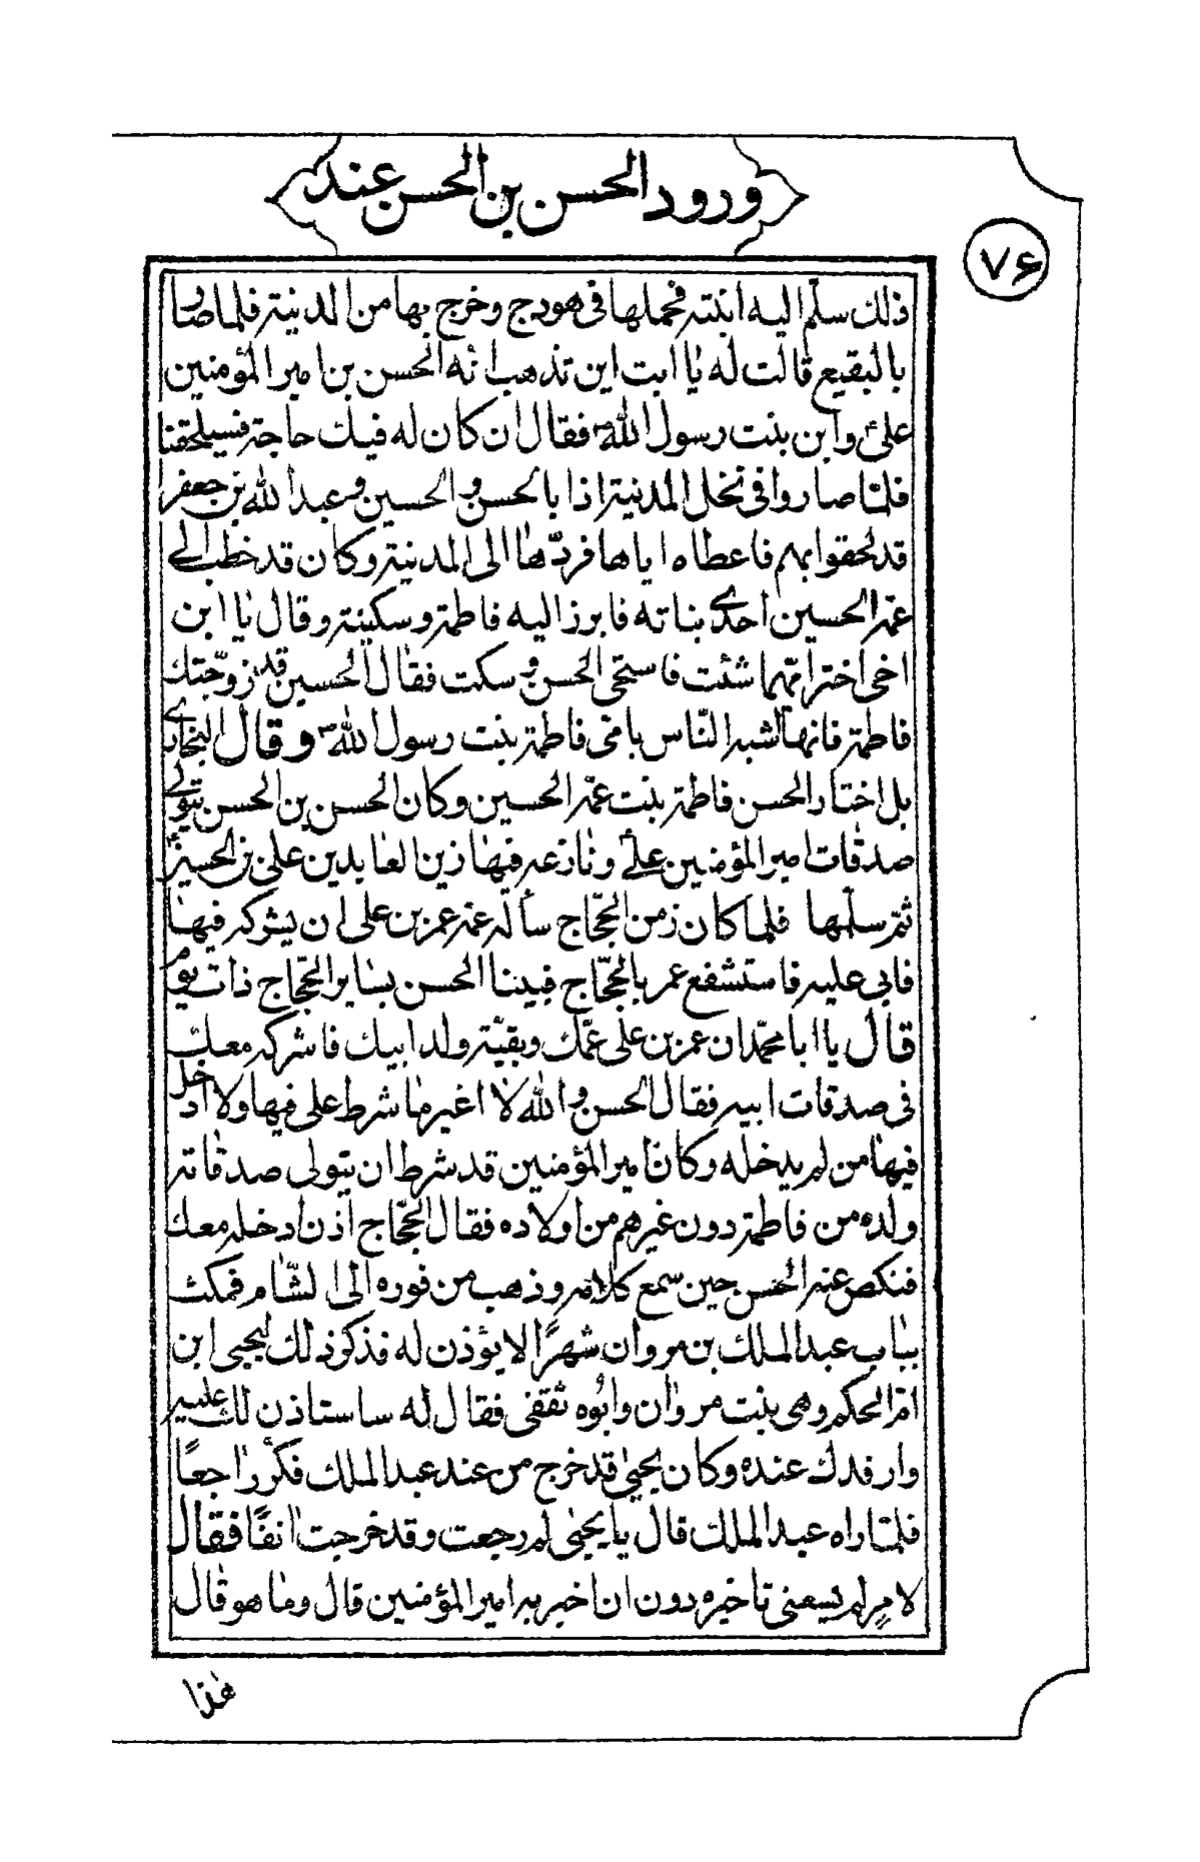 ورود الحسن بن الحسن عند
٧۶
ذلك سلّم اليه ابنته فحملها فى هودج وخرج بها من المدينة فلما صارا
بالبقيع قالت له يا ابت اين تذهب انه الحسن بن امير المؤمنين
علىّ وابن بنت رسول الله ص فقال ان كان له فيك حاجة فسيلحقنا
فلمّا صاروا فى نخل المدينة اذا بالحسن والحسين وعبد الله بن جعفر
قد لحقوا بهم فاعطاه اياها فردّها الى المدينة وكان قد خطب الى
عمّه الحسين احدى بناته فابرز اليه فاطمة وسكينة وقال يا ابن
اخى اختر ايّهما شئت فاستحى الحسن وسكت فقال الحسين قد زوّجتك
فاطمة فانها اشبه النّاس بامّى فاطمة بنت رسول الله ص وقال البخارى
بل اختار الحسن فاطمة بنت عمّه الحسين وكان الحسن بن الحسن يتولى
صدقات امير المؤمنين علىّ ونازعه فيها زين العابدين على بن الحسين
ثم سلّمها فلما كان زمن الحجّاج سأله عمّه عمر بن على ان يشركه فيها
فابى عليه فاستشفع عمر بالحجّاج فبينا الحسن يساير الحجّاج ذات يوم
قال يا ابا محمّد ان عمر بن على عمّك وبقيّة ولد ابيك فاشركه معك
فى صدقات ابيه فقال الحسن والله لا اغير ما شرط على فيها ولا ادخل
فيها من لم يدخله وكان امير المؤمنين قد شرط ان يتولى صدقاته
ولده من فاطمة دون غيرهم من اولاده فقال الحجّاج اذن ادخله معك
فنكص عنه الحسن حين سمع كلامه وذهب من فوره الى الشّام فمكث
بباب عبد الملك بن مروان شهرًا لا يؤذن له فذكر ذلك ليحيى ابن
امّ الحكم وهى بنت مروان وابوه ثقفى فقال له ساستاذن لك عليه
وارفدك عنده وكان يحيى قد خرج من عند عبد الملك فكرّ راجعًا
فلمّا راه عبد الملك قال يا يحيى لم رجعت وقد خرجت انفًا فقال
لامرٍ لم يسعنى تاخيره دون ان اخبر به امير المؤمنين قال وما هو قال
هذا